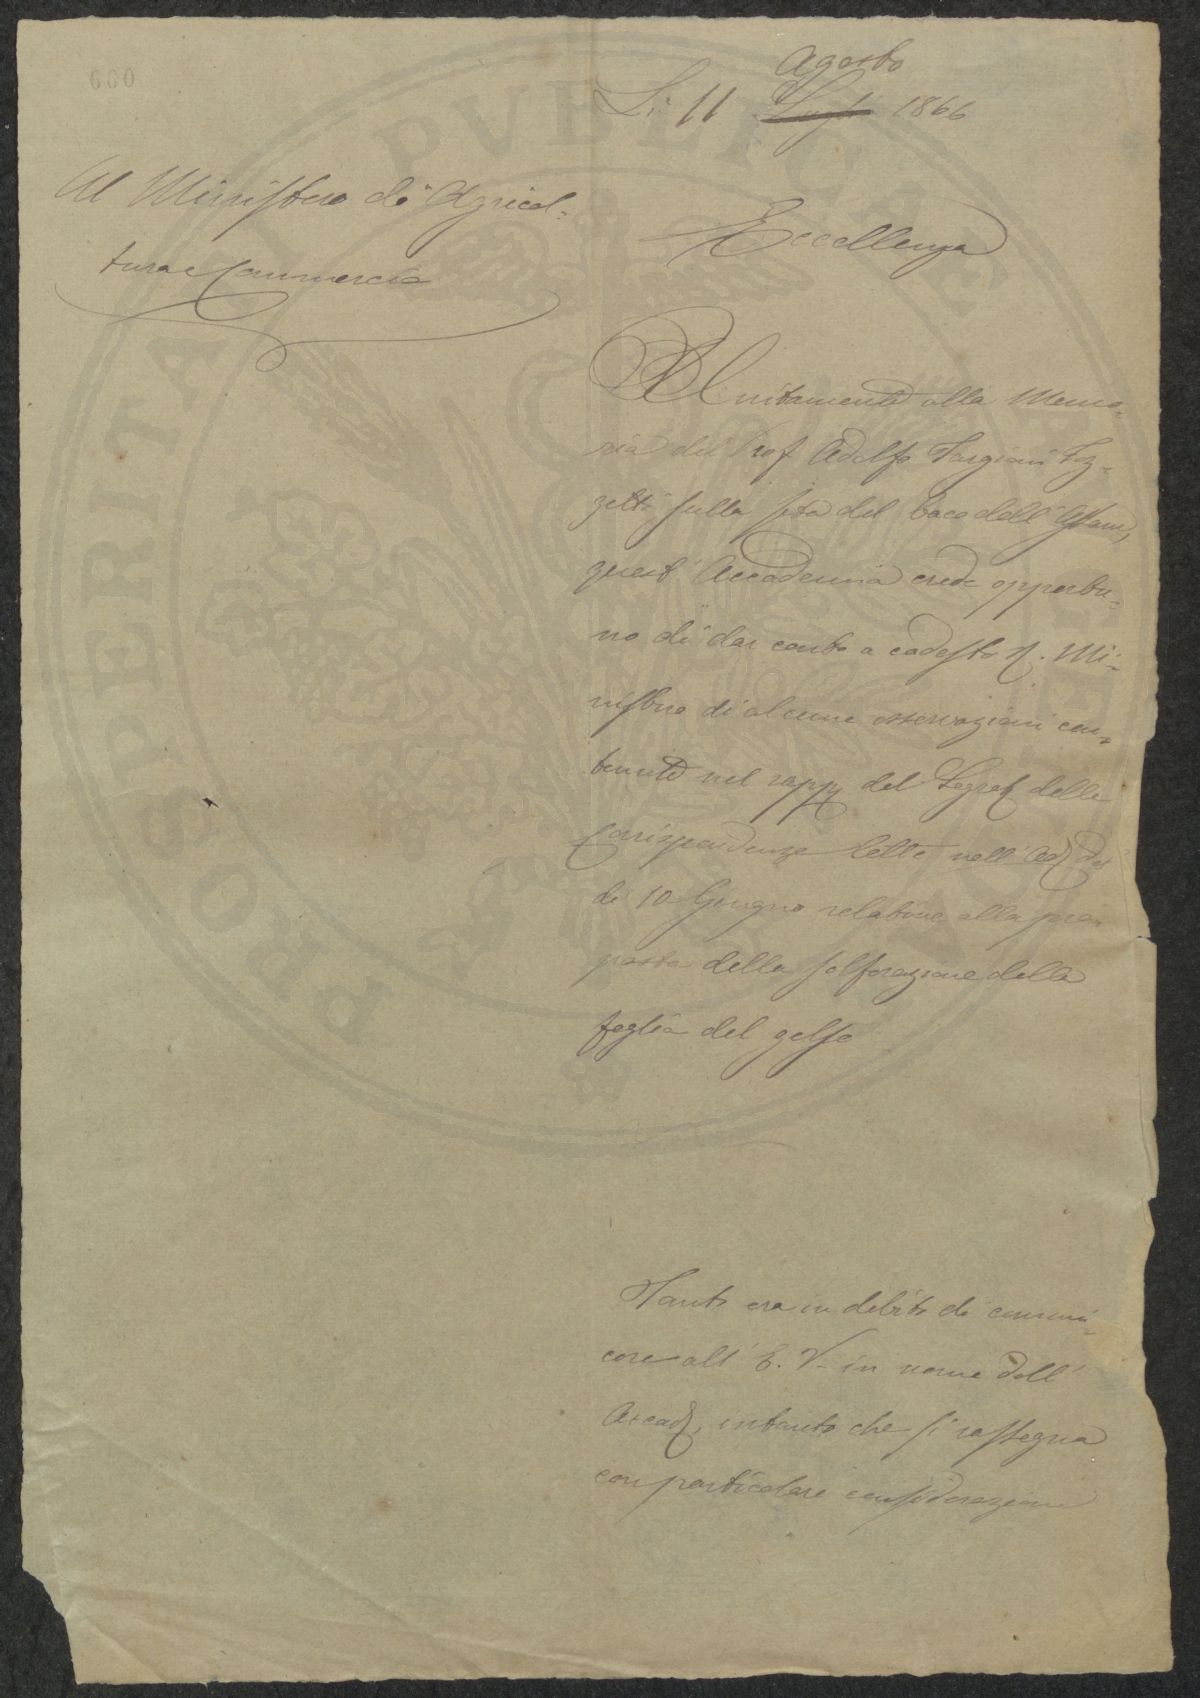 660
Agosto
Li 11 Luglio 1866
Al Ministero di Agricol=
tura e Commercio
Eccellenza
Unitamente alla Memo=
ria del Prof Adolfo Targioni Toz=
zetti sulla seta del baco dell'
quest' Accademia crede opportu=
no di dar conto a codesto R. Mi=
nistero di alcune osservazioni con=
tenute nel rapp del Segret delle
Corrispondenze letto nell' Ad
di 10 Giugno relative alla pro
posta della solforazione della
foglia del gelso
Tanto era in debito di comuni=
care all' E. V. in nome dell'
Accad, intanto che si rassegna
con particolare considerazione
PROSPERITATI PVBLICAE AVGENDAE